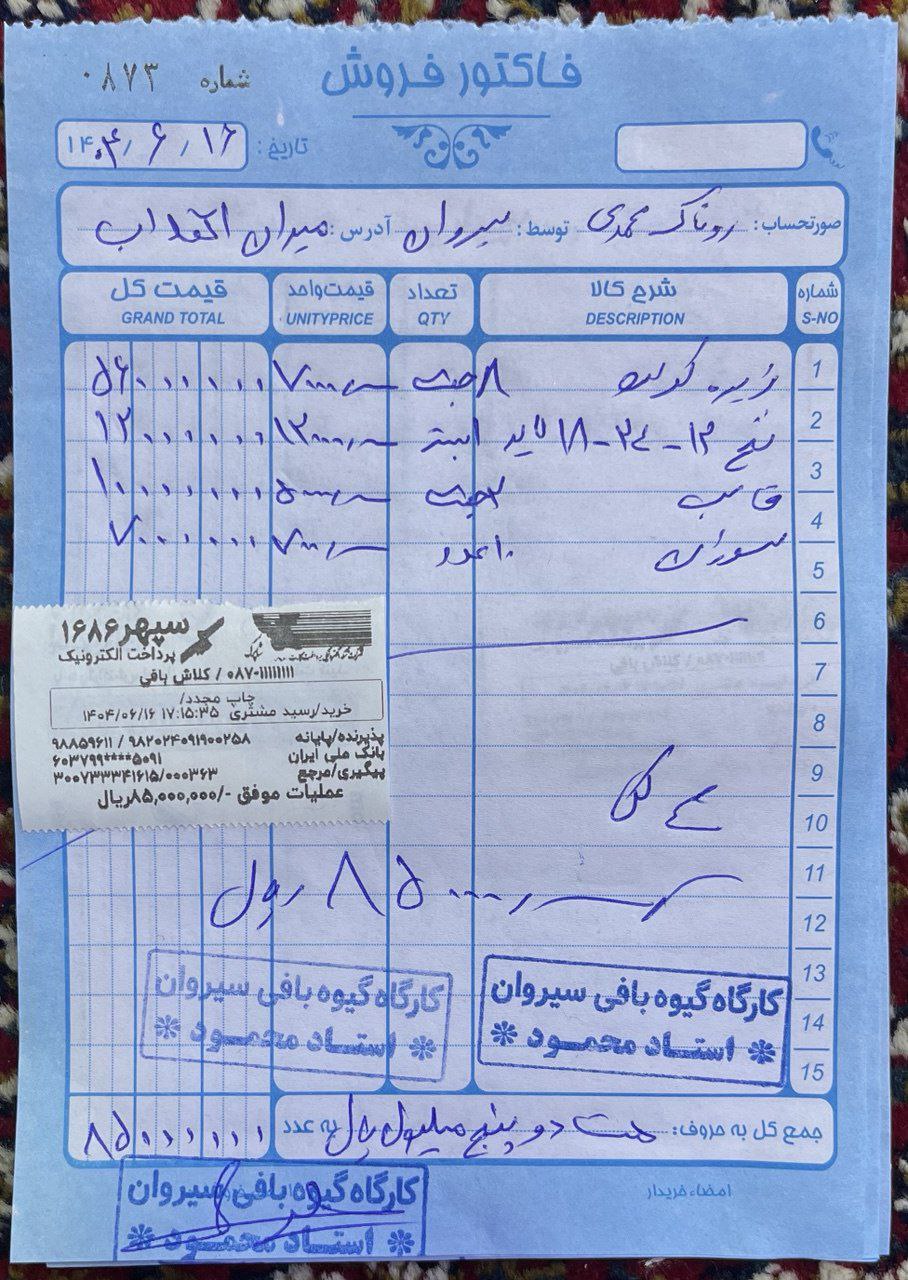 فاکتور فروش
شماره ۰۸۷۳
تاریخ: ۱۴۰۴/۶/۱۶
صورتحساب: روناک محمدی توسط: سیروان آدرس: میدان انقلاب
شماره شرح کالا تعداد قیمت واحد قیمت کل
S-NO DESCRIPTION QTY UNITYPRICE GRAND TOTAL
1 زیره ۸ جفت ۷۰۰۰۰۰۰ ۵۶۰۰۰۰۰۰
2 نخ ۱۲۰۰۰۰۰۰ ۱۲۰۰۰۰۰۰
3 قالب ۲ جفت ۵۰۰۰۰۰۰ ۱۰۰۰۰۰۰۰
4 ۱۰ عدد ۷۰۰۰۰۰ ۷۰۰۰۰۰۰
5
6
7
8
9
10
11
۸۵۰۰۰۰۰۰ ریال
12
13
14
15
سپهر ۱۶۸۶
پرداخت الکترونیک
۰۸۷-۱۱۱۱۱۱۱۱ / کلاش بافی
چاپ مجدد/
خرید/رسید مشتری ۱۴۰۴/۰۶/۱۶ ۱۷:۱۵:۳۵
پذیرنده/پایانه ۹۸۲۰۲۴۰۹۱۹۰۰۲۵۸ / ۹۸۸۵۹۶۱۱
بانک ملی ایران ۶۰۳۷۹۹****۵۰۹۱
پیگیری/مرجع ۳۰۰۷۳۳۳۴۱۶۱۵/۰۰۰۳۶۳
عملیات موفق -/۸۵,۰۰۰,۰۰۰ریال
کارگاه گیوه بافی سیروان
استاد محمود
کارگاه گیوه بافی سیروان
استاد محمود
جمع کل به حروف: هشتاد و پنج میلیون ریال به عدد ۸۵۰۰۰۰۰۰
امضاء خریدار
کارگاه گیوه بافی سیروان
استاد محمود